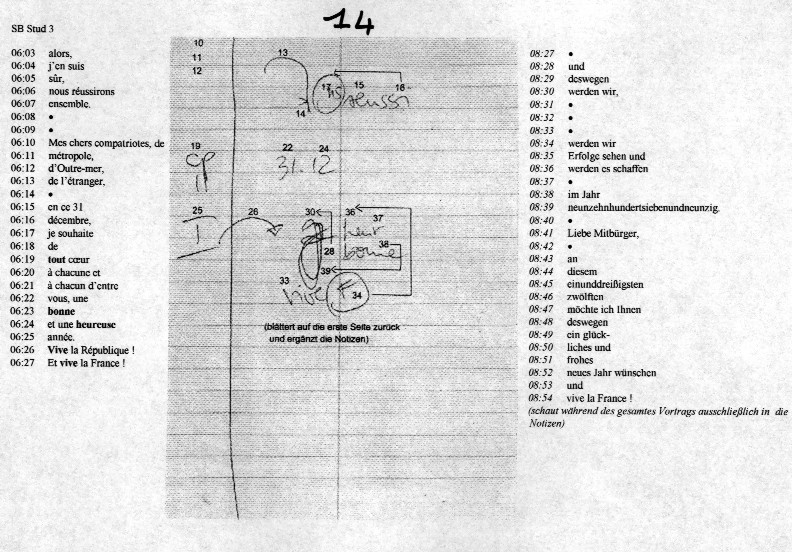 14
SB Stud 3
06:03 alors,
06:04 j'en suis
06:05 sûr,
06:06 nous réussirons
06:07 ensemble.
06:08 •
06:09 •
06:10 Mes chers compatriotes, de
06:11 métropole,
06:12 d'Outre-mer,
06:13 de l'étranger,
06:14 •
06:15 en ce 31
06:16 décembre,
06:17 je souhaite
06:18 de
06:19 tout cœur
06:20 à chacune et
06:21 à chacun d'entre
06:22 vous, une
06:23 bonne
06:24 et une heureuse
06:25 année.
06:26 Vive la République !
06:27 Et vive la France !
10
11
12
13
17 15 16
14
19 22 24
31.12
25 26 30 36 37
I
28 38
bonne
39
33 34
vive F
(blättert auf die erste Seite zurück
und ergänzt die Notizen)
08:27 •
08:28 und
08:29 deswegen
08:30 werden wir,
08:31 •
08:32 •
08:33 •
08:34 werden wir
08:35 Erfolge sehen und
08:36 werden es schaffen
08:37 •
08:38 im Jahr
08:39 neunzehnhundertsiebenundneunzig.
08:40 •
08:41 Liebe Mitbürger,
08:42 •
08:43 an
08:44 diesem
08:45 einunddreißigsten
08:46 zwölften
08:47 möchte ich Ihnen
08:48 deswegen
08:49 ein glück-
08:50 liches und
08:51 frohes
08:52 neues Jahr wünschen
08:53 und
08:54 vive la France !
(schaut während des gesamtes Vortrags ausschließlich in die
Notizen)